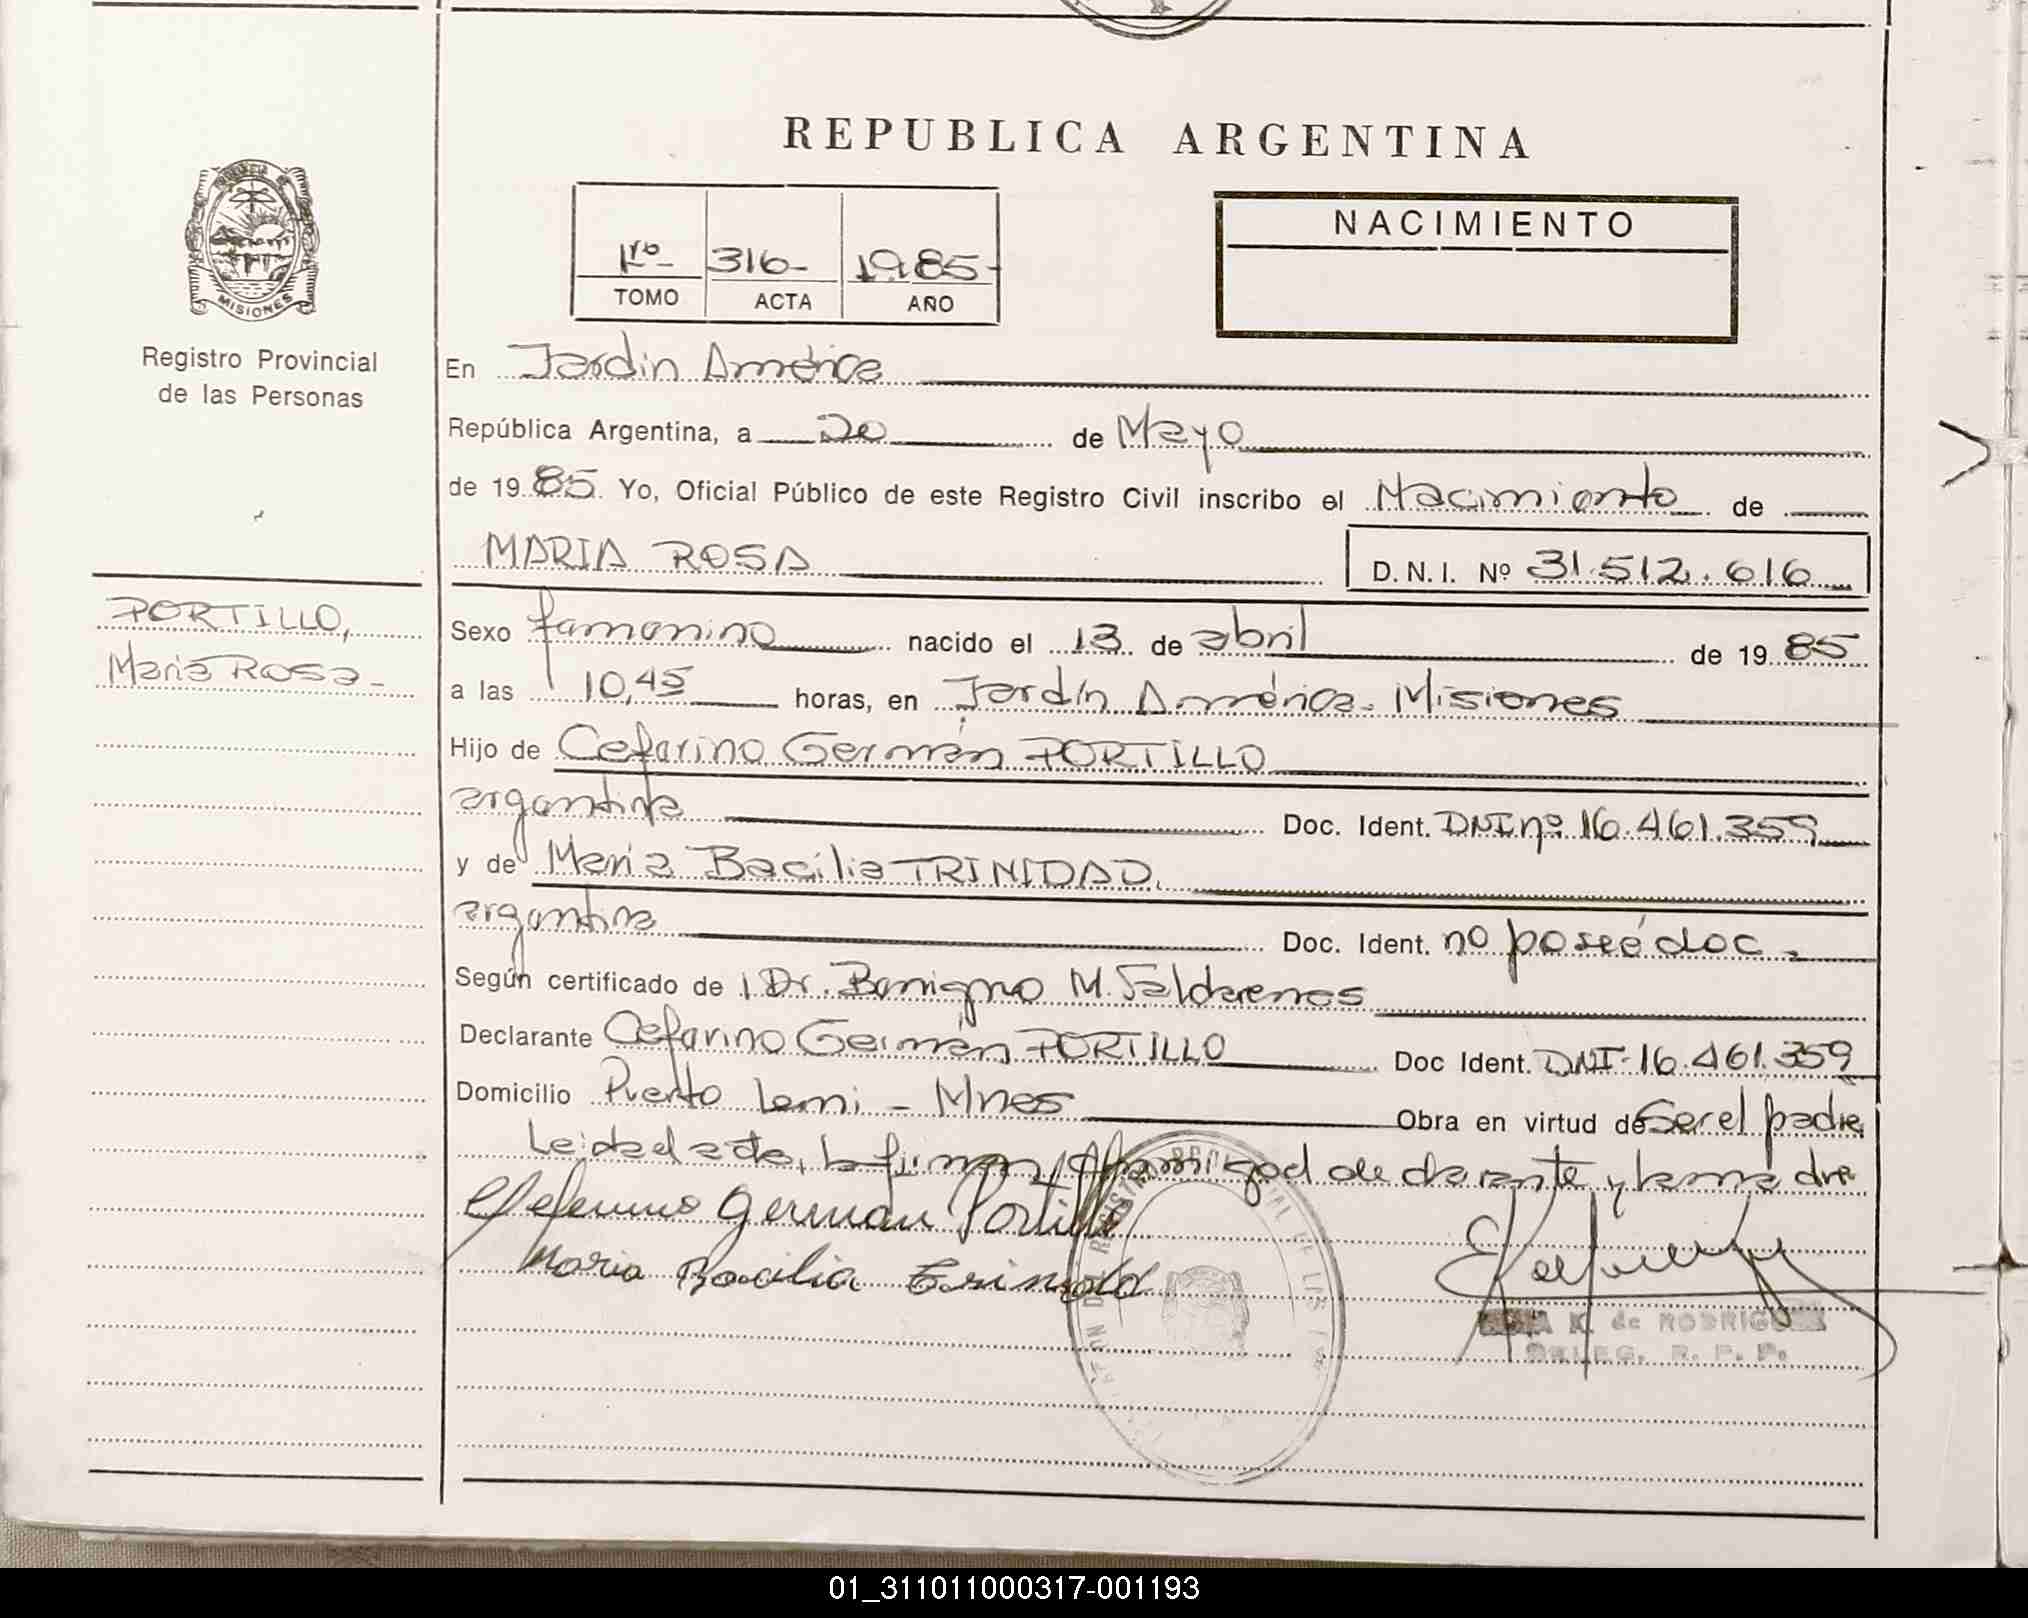 REPUBLICA ARGENTINA
MISIONES
Registro Provincial
de las Personas
1ro - 316- 1985-
TOMO ACTA AÑO
NACIMIENTO
En Jardín América
República Argentina, a 20 de Mayo
de 1985 Yo, Oficial Público de este Registro Civil inscribo el Nacimiento de
MARIA ROSA D.N.I. Nº 31.512.616
PORTILLO,
Maria Rosa-
Sexo femenino nacido el 13 de abril de 1985
a las 10,45 horas, en Jardín América. Misiones
Hijo de Ceferino Germán PORTILLO
argentina Doc. Ident. DNI nº 16.461.359
y de Maria Bacilia TRINIDAD,
argentina Doc. Ident. no poseé doc.
Según certificado de Dr. Benigno M.
Declarante Ceferino Germán PORTILLO Doc Ident. DNI-16.461.359
Domicilio Puerto Leni - Mnes Obra en virtud de Ser el padre
Leida el acta, la firman conmigo el declarante y la madre
Ceferino German Portillo
Maria Bacilia
K. de RODRIGUEZ
DELEG. R. P. P.
01_311011000317-001193